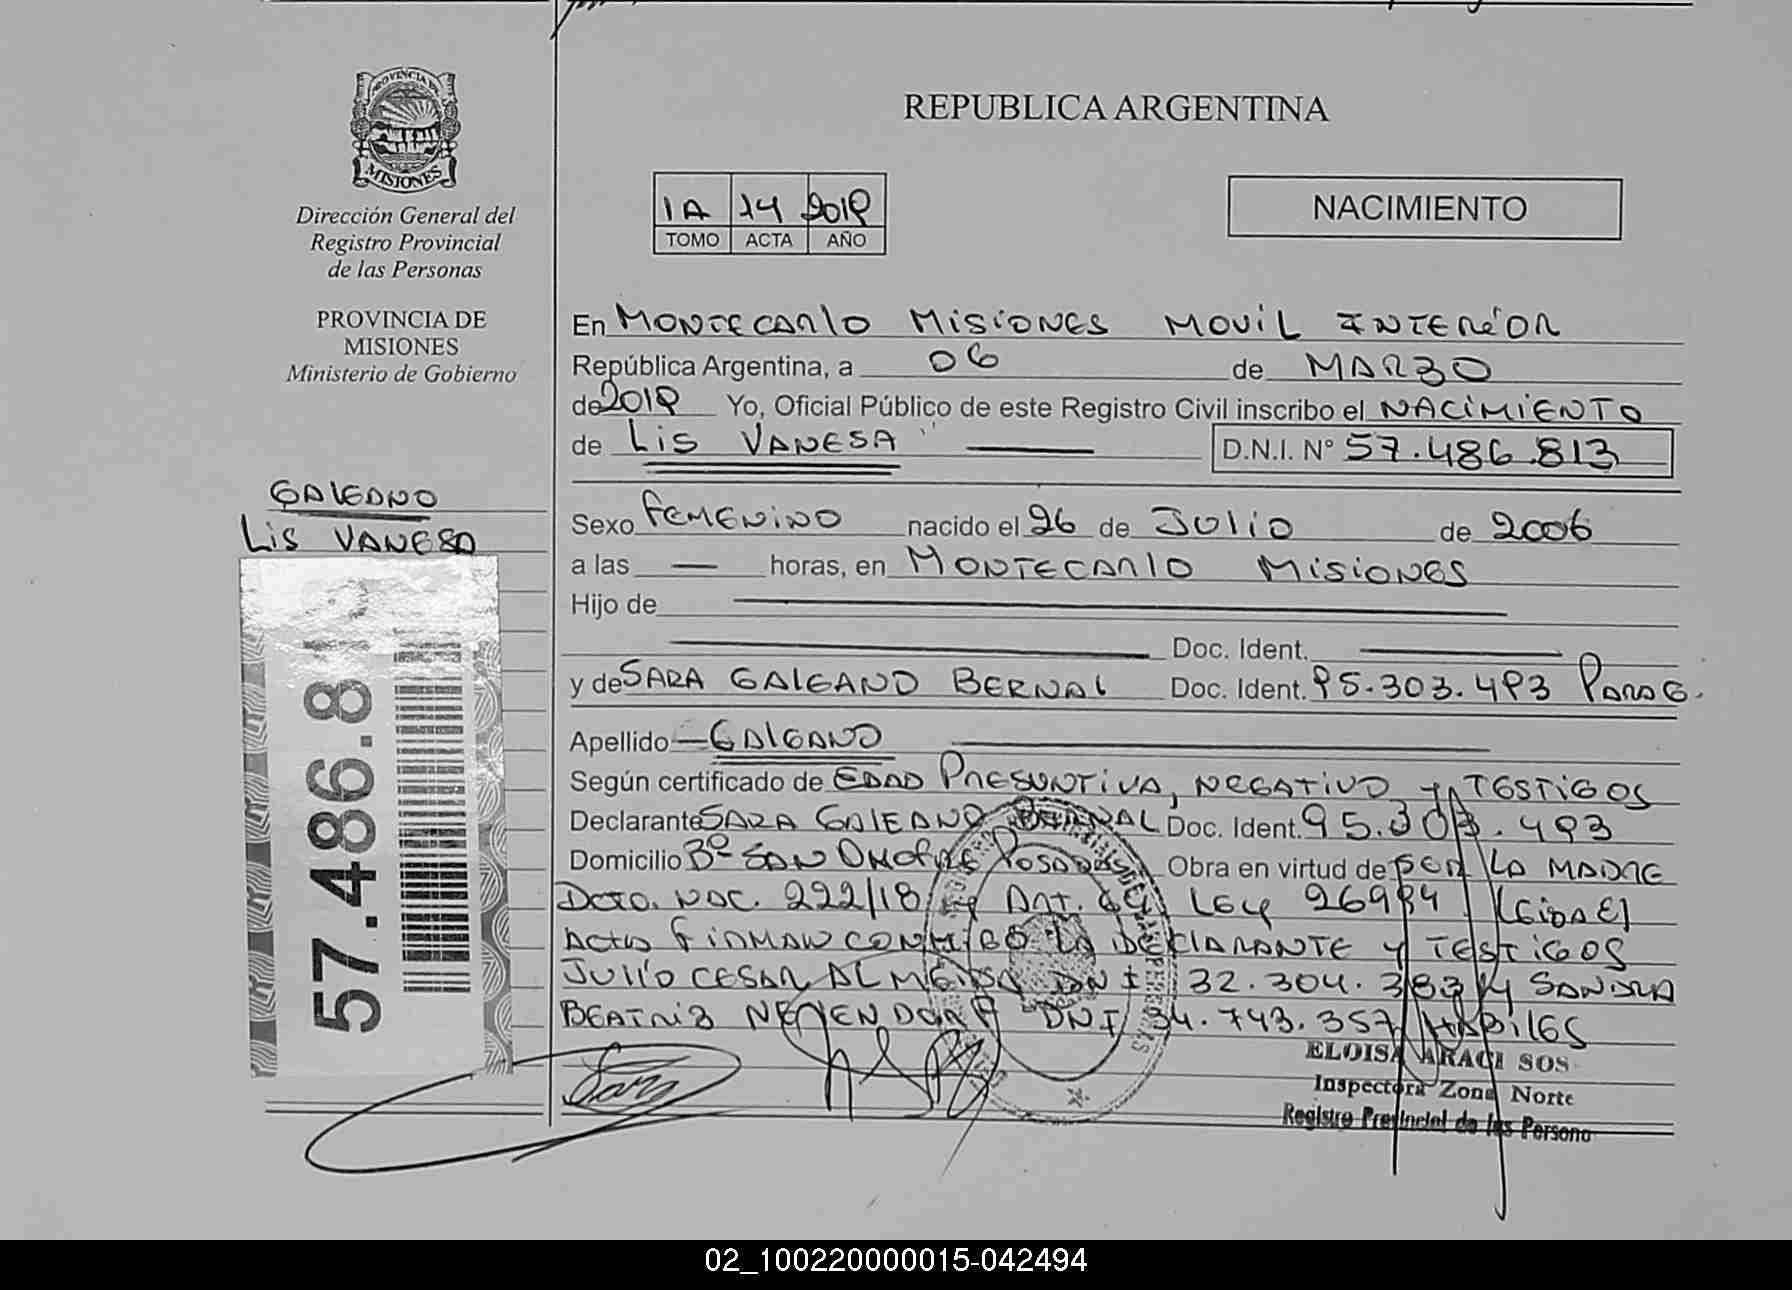 REPUBLICA ARGENTINA
PROVINCIA DE
MISIONES
Dirección General del
Registro Provincial
de las Personas
PROVINCIA DE
MISIONES
Ministerio de Gobierno
GALEANO
LIS VANESA
57.486.8
1A 14 2019
TOMO ACTA AÑO
NACIMIENTO
En MONTECARLO MISIONES MOVIL INTERIOR
República Argentina, a 06 de MARZO
de 2019 Yo, Oficial Público de este Registro Civil inscribo el NACIMIENTO
de LIS VANESA D.N.I. N° 57.486.813
Sexo FEMENINO nacido el 26 de JULIO de 2006
a las — horas, en MONTECARLO MISIONES
Hijo de
Doc. Ident.
y de SARA GALEANO BERNAL Doc. Ident. 95.303.493 PARAG.
Apellido — GALEANO
Según certificado de EDAD PRESUNTIVA, NEGATIVO y TESTIGOS
Declarante SARA GALEANO BERNAL Doc. Ident. 95.303.493
Domicilio Bº SAN ONOFRE POSADAS Obra en virtud de SER LA MADRE
DCTO. NAC. 222/18 ART. LEY 26994 LEIDA EL
ACTA FIRMAN CONMIGO LA DECLARANTE y TESTIGOS
JULIO CESAR ALMEIDA DNI 32.304.383 y SANDRA
BEATRIZ DNI 34.743.357 HABILES
Sara
ELOISA ARACI SOS
Inspectora Zona Norte
Registro Provincial de las Persona
02_100220000015-042494